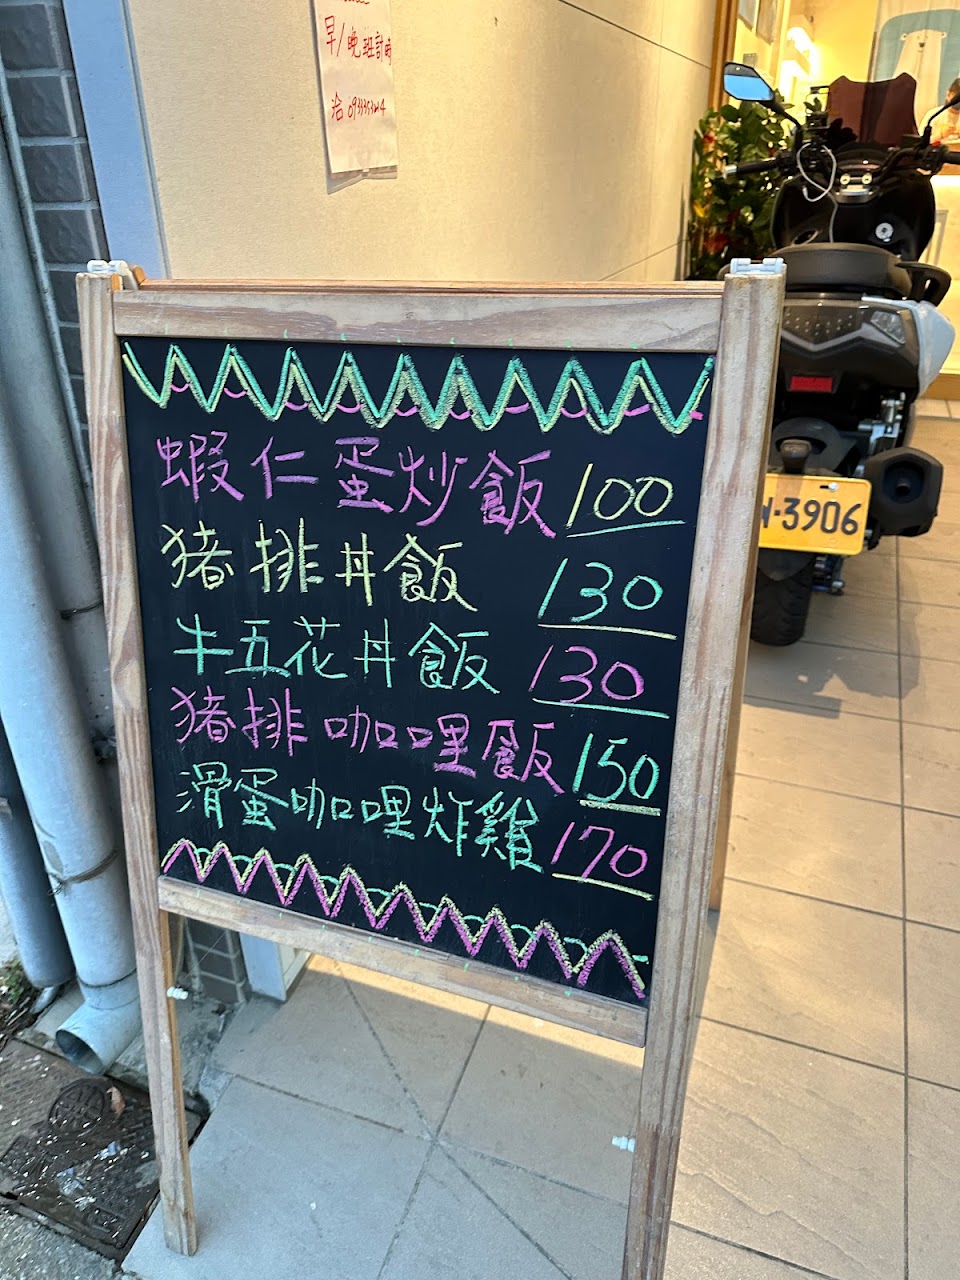 早/晚班計時
洽
蝦仁蛋炒飯 100
猪排丼飯 130
牛五花丼飯 130
猪排咖哩飯 150
滑蛋咖哩炸雞 170
·3906